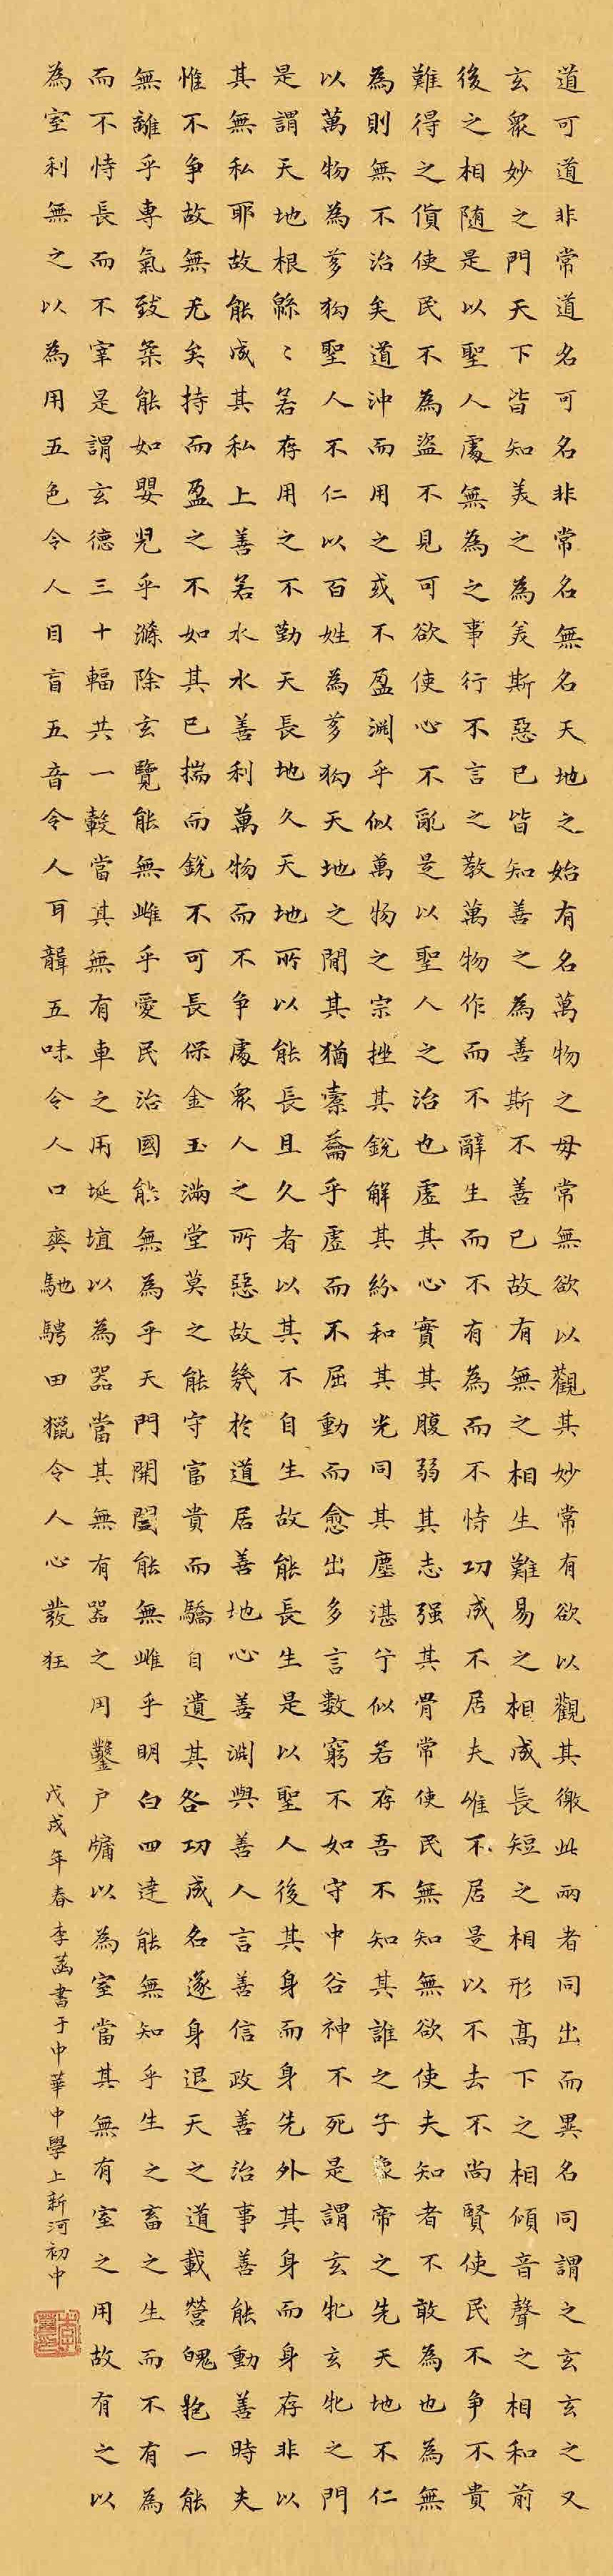 道可道非常道名可名非常名無名天地之始有名萬物之母常無欲以觀其妙常有欲以觀其徼此兩者同出而異名同謂之玄玄之又
玄眾妙之門天下皆知美之為美斯惡已皆知善之為善斯不善已故有無之相生難易之相成長短之相形高下之相傾音聲之相和前
後之相随是以聖人處無為之事行不言之教萬物作而不辭生而不有為而不恃功成不居夫惟不居是以不去不尚賢使民不爭不貴
難得之貨使民不為盜不見可欲使心不亂是以聖人之治也虛其心實其腹弱其志强其骨常使民無知無欲使夫知者不敢為也為無
為則無不治矣道沖而用之或不盈淵乎似萬物之宗挫其銳解其紛和其光同其塵湛兮似若存吾不知其誰之子象帝之先天地不仁
以萬物為芻狗聖人不仁以百姓為芻狗天地之間其猶橐籥乎虛而不屈動而愈出多言數窮不如守中谷神不死是謂玄牝玄牝之門
是謂天地根綿〻若存用之不勤天長地久天地所以能長且久者以其不自生故能長生是以聖人後其身而身先外其身而身存非以
其無私耶故能成其私上善若水水善利萬物而不爭處眾人之所惡故幾於道居善地心善淵與善人言善信政善治事善能動善時夫
惟不爭故無尤矣持而盈之不如其已揣而銳不可長保金玉滿堂莫之能守富貴而驕自遺其咎功成名遂身退天之道載營魄抱一能
無離乎專氣致柔能如嬰兒乎滌除玄覽能無雌乎愛民治國能無為乎天門開闔能無雌乎明白四達能無知乎生之畜之生而不有為
而不恃長而不宰是謂玄德三十輻共一轂當其無有車之用埏埴以為器當其無有器之用鑿戶牖以為室當其無有室之用故有之以
為室利無之以為用五色令人目盲五音令人耳聾五味令人口爽馳騁田獵令人心發狂
戊戌年春李菡書于中華中學上新河初中